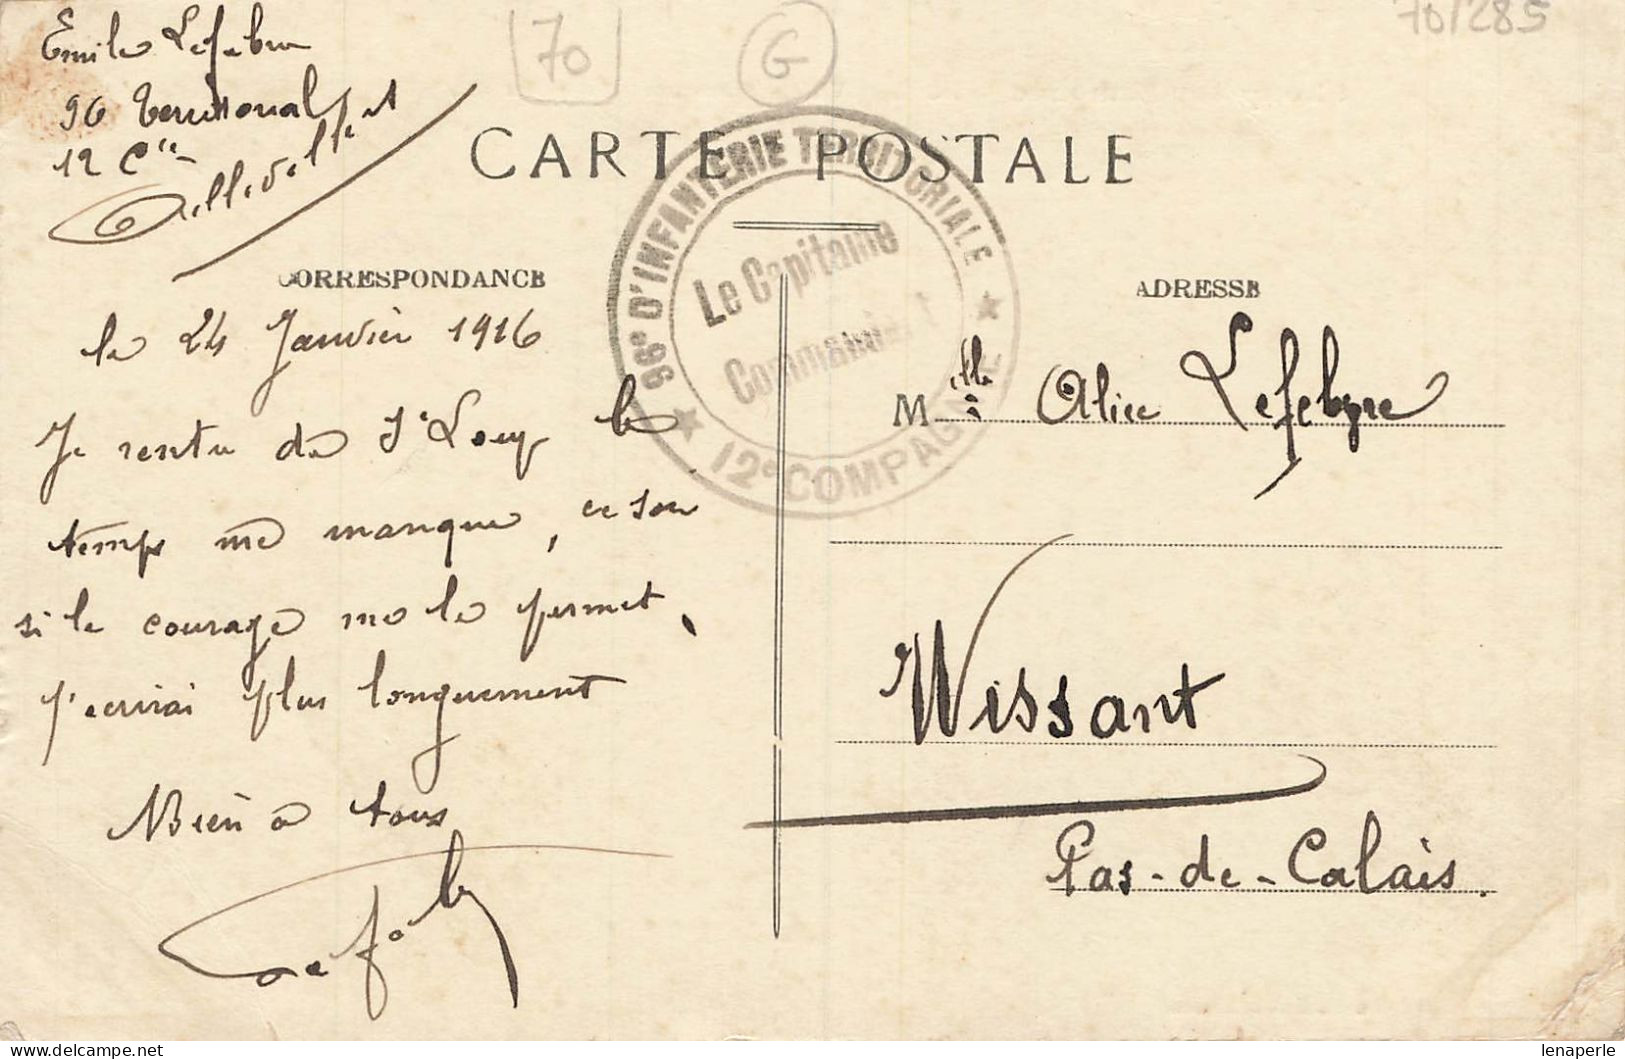 70/285
70
G
Emile Lefebvre
96 territorial
12 Cie
CARTE POSTALE
96e D'INFANTERIE TERRITORIALE
Le Capitaine
Commandant
12e COMPAGNIE
CORRESPONDANCE
le 24 Janvier 1916
Je rentre de St Loup le
temps me manque, ce soir
si le courage me le permet,
j'ecrirai plus longuement
Bien à tous
Lefeb
ADRESSE
Melle Alice Lefebvre
Wissant
Pas-de-Calais.
delcampe.net
lenaperle